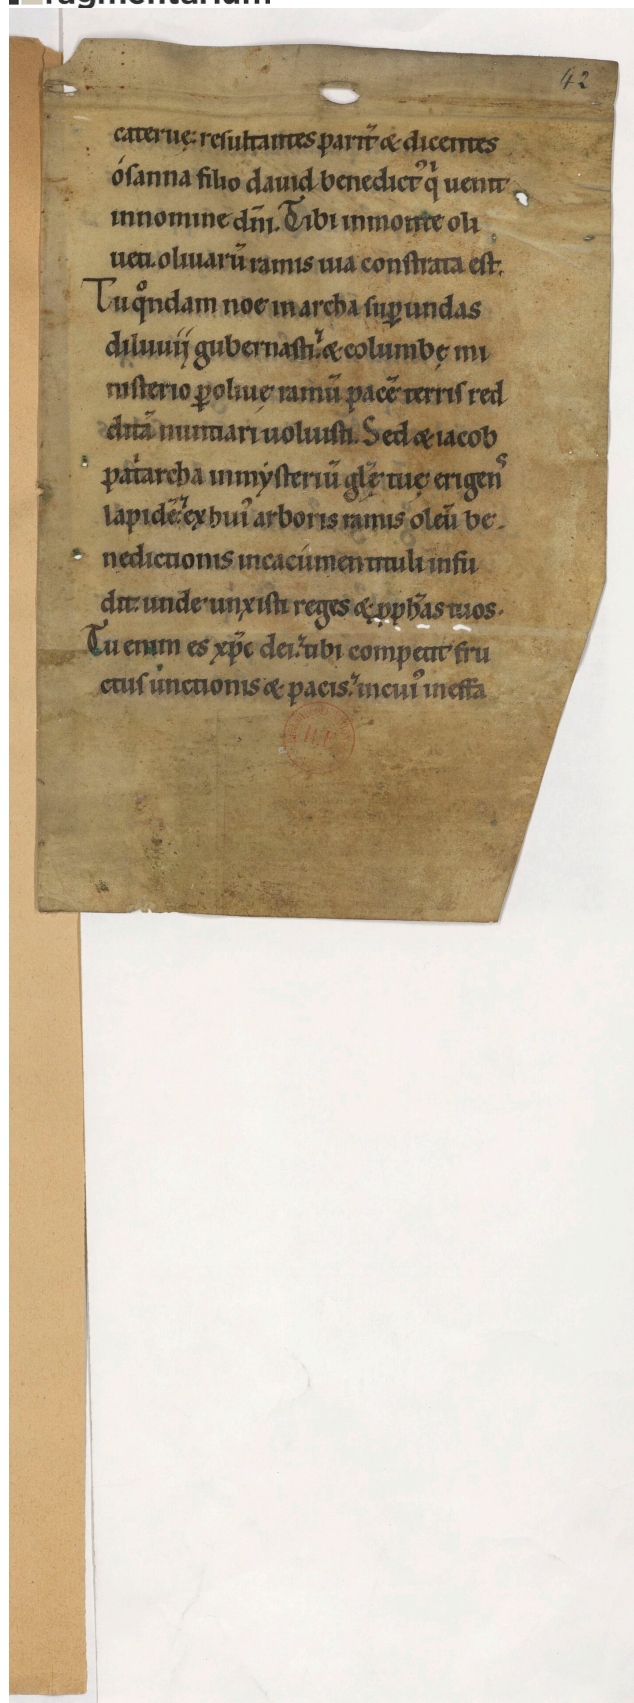 fragmentarium
42
cateruę: resultantes parit̄ & dicentes
osanna filio dauid benedictꝰ q̇ uenit
innomine dn̄i. Tibi inmonte oli
ueti. oliuarū ramis uia constrata est.
Tu qͦndam noe inarcha suꝑ undas
diluuij gubernasti. & columbę mi
nisterio ꝑ oliuę ramū pacē terris red
ditā nuntiari uoluisti. Sed & iacob
pat̓archa inmẏsteriū gl̄ę tuę erigens
lapidē. ex huiꝰ arboris ramis oleū be
nedictionis incacumen tituli infu
dit: unde unxisti reges & ꝓph̄as tuos.
Tu enim es xp̄c dei. tibi competit fru
ctus unctionis & pacis. incuiꝰ ineffa